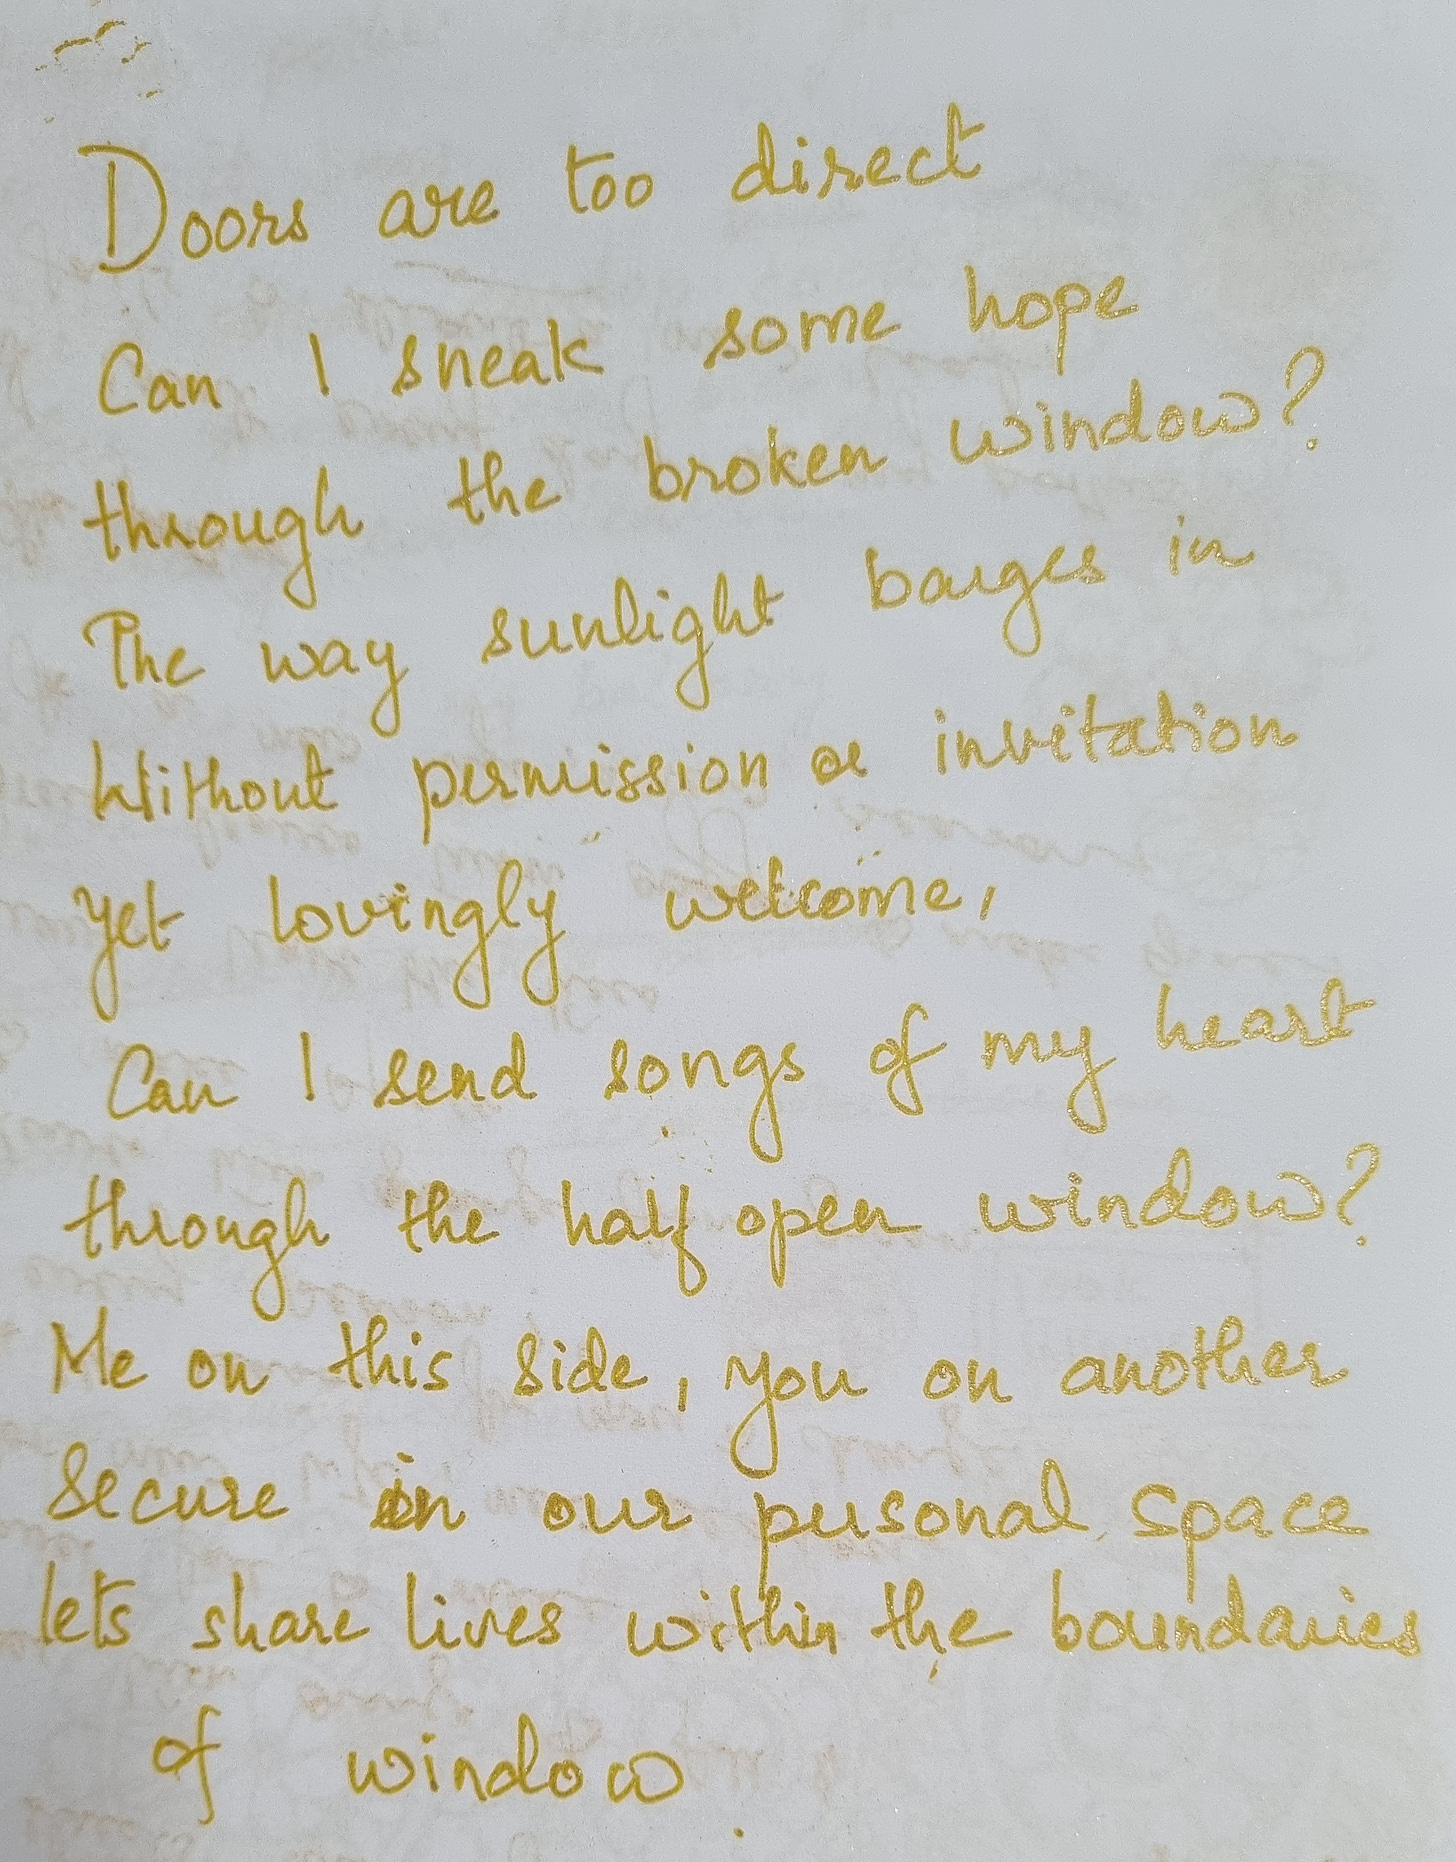 Doors are too direct
Can I sneak some hope
through the broken window?
The way sunlight barges in
Without permission or invitation
yet lovingly welcome,
Can I send songs of my heart
through the half open window?
Me on this side, you on another
Secure in our personal space
lets share lives within the boundaries
of window.